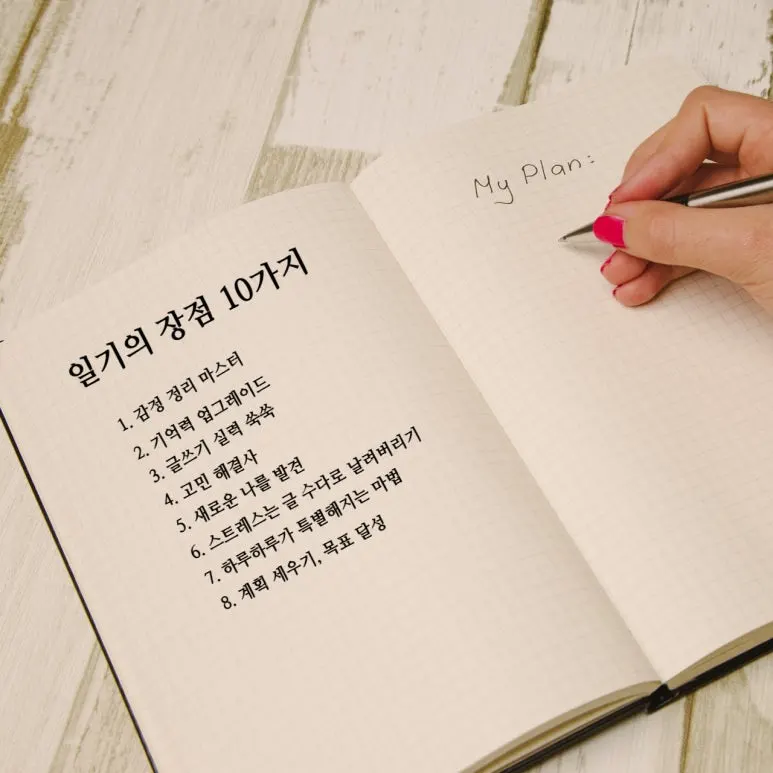 일기의 장점 10가지
1. 감정 정리 마스터
2. 기억력 업그레이드
3. 글쓰기 실력 쑥쑥
4. 고민 해결사
5. 새로운 나를 발견
6. 스트레스는 글 수다로 날려버리기
7. 하루하루가 특별해지는 마법
8. 계획 세우기, 목표 달성
My Plan: